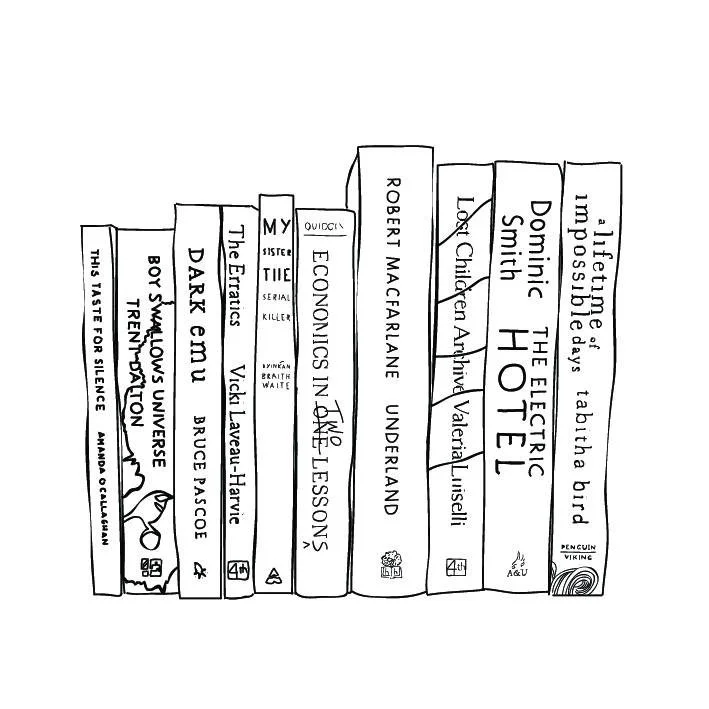 THIS TASTE FOR SILENCE AMANDA O'CALLAGHAN
BOY SWALLOWS UNIVERSE
TRENT DALTON
DARK emu BRUCE PASCOE
The Erratics Vicki Laveau-Harvie
4th
MY
SISTER
THE
SERIAL
KILLER
OYINKAN
BRAITH
WAITE
QUIGGIN
ECONOMICS IN ONE LESSONS
TWO
^
ROBERT MACFARLANE UNDERLAND
hh
Lost Children Archive Valeria Luiselli
4th
Dominic
Smith
THE ELECTRIC
HOTEL
A&U
a lifetime of
impossible days tabitha bird
PENGUIN
VIKING